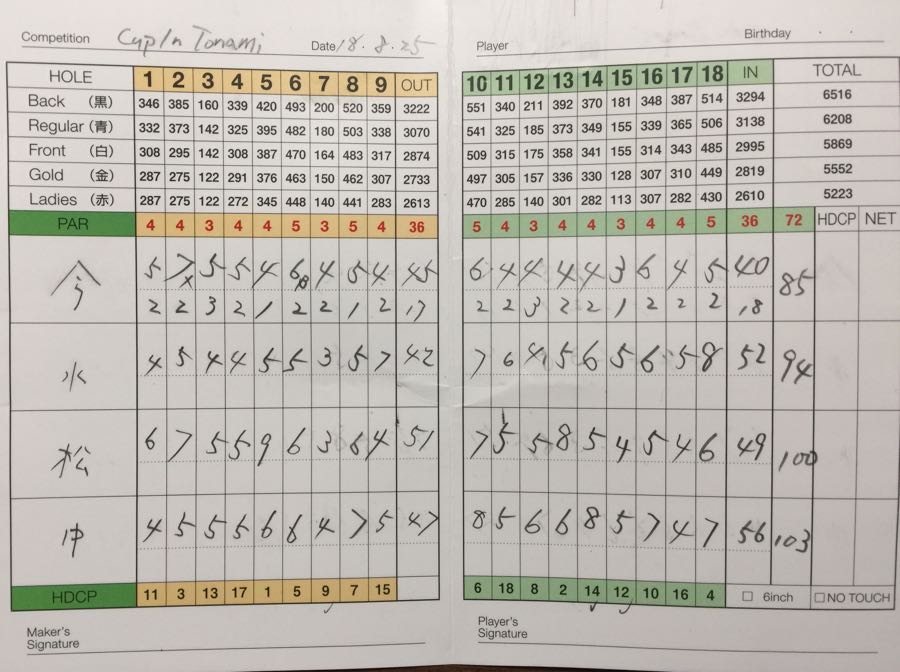 Competition CupIn Tonami Date 18.8.25 Player Birthday . .
HOLE 1 2 3 4 5 6 7 8 9 OUT 10 11 12 13 14 15 16 17 18 IN TOTAL
Back (黒) 346 385 160 339 420 493 200 520 359 3222 551 340 211 392 370 181 348 387 514 3294 6516
Regular (青) 332 373 142 325 395 482 180 503 338 3070 541 325 185 373 349 155 339 365 506 3138 6208
Front (白) 308 295 142 308 387 470 164 483 317 2874 509 315 175 358 341 155 314 343 485 2995 5869
Gold (金) 287 275 122 291 376 463 150 462 307 2733 497 305 157 336 330 128 307 310 449 2819 5552
Ladies (赤) 287 275 122 272 345 448 140 441 283 2613 470 285 140 301 282 113 307 282 430 2610 5223
PAR 4 4 3 4 4 5 3 5 4 36 5 4 3 4 4 3 4 4 5 36 72 HDCP NET
今 5 7 5 5 4 6 4 5 4 45 6 4 4 4 4 3 6 4 5 40 85
2 2 3 2 1 2 2 1 2 17 2 2 3 2 2 1 2 2 2 18
水 4 5 4 4 5 5 3 5 7 42 7 6 4 5 6 5 6 5 8 52 94
松 6 7 5 5 9 6 3 6 4 51 7 5 5 8 5 4 5 4 6 49 100
4 5 5 5 6 6 4 7 5 47 8 5 6 6 8 5 7 4 7 56 103
HDCP 11 3 13 17 1 5 9 7 15 6 18 8 2 14 12 10 16 4 □ 6inch □ NO TOUCH
Maker's Signature
Player's Signature